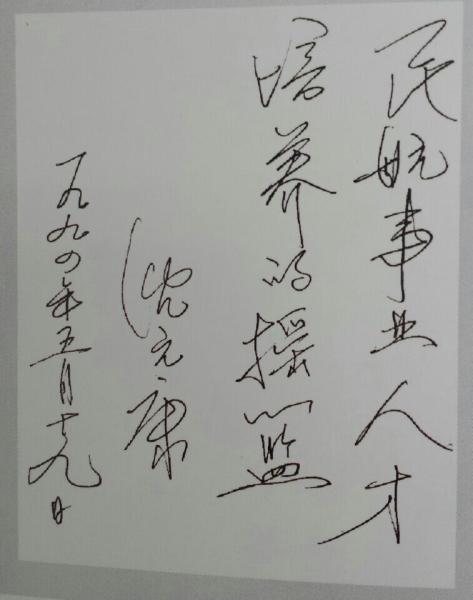 民航事业人才
培养的摇篮
沈元康
一九九〇年五月十九日